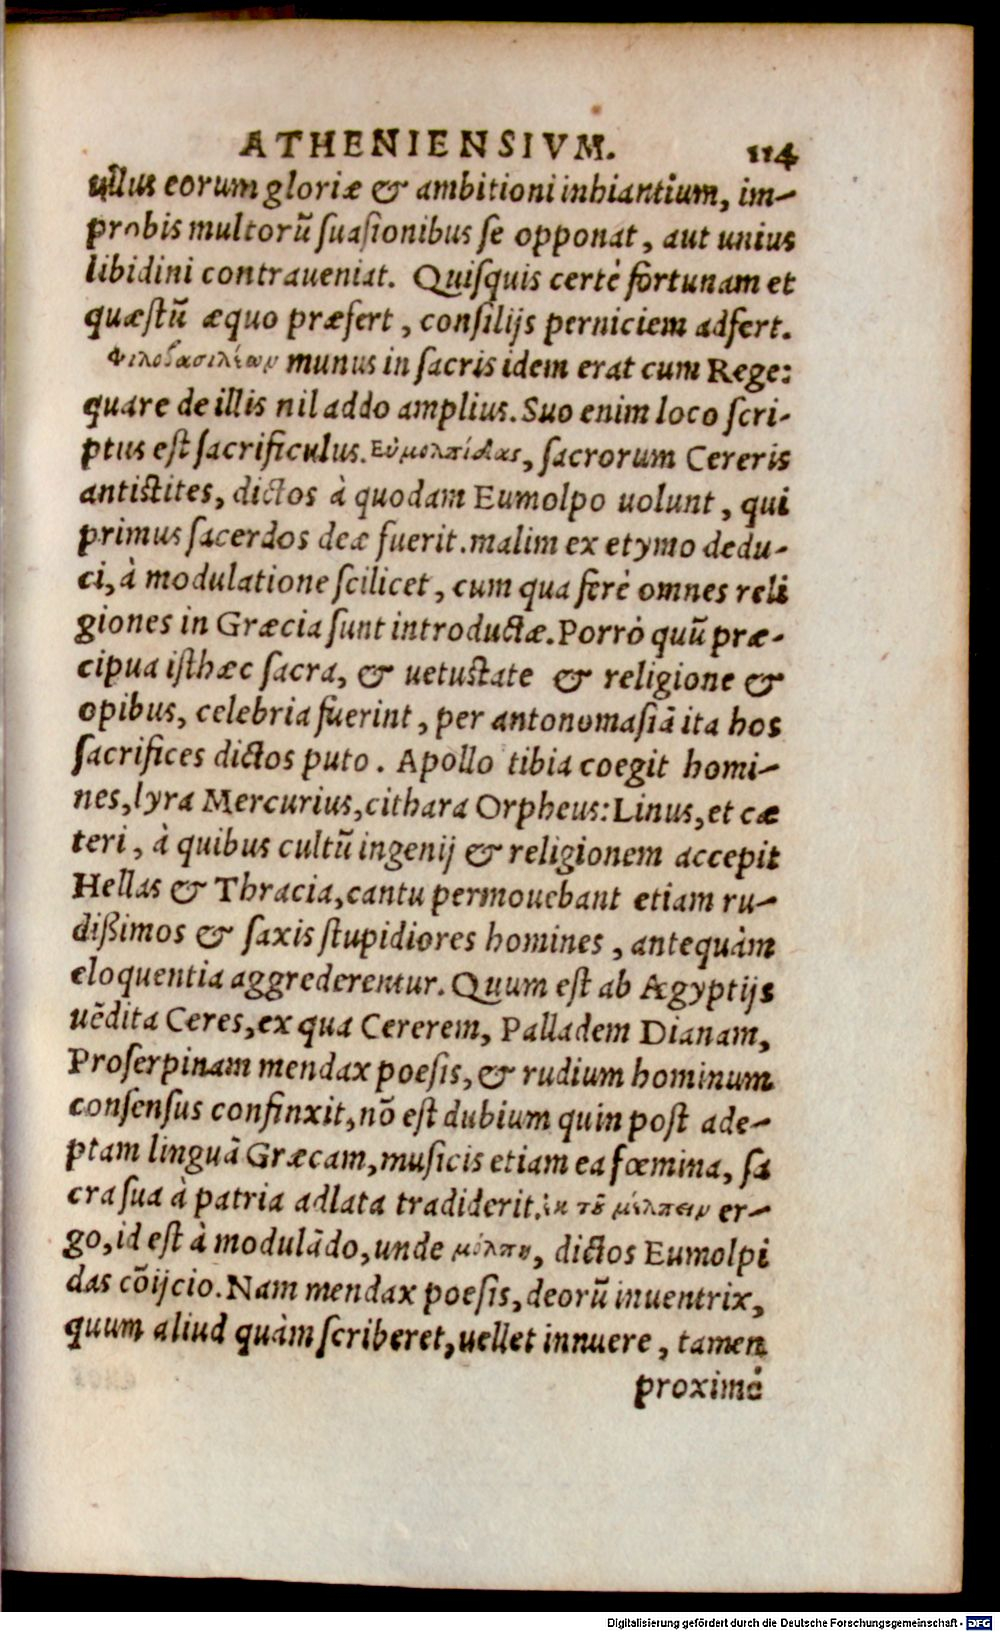 ATHENIENSIVM. 114
ullus eorum gloriæ & ambitioni inhiantium, im-
probis multorũ suasionibus se opponat, aut unius
libidini contraueniat. Quisquis certè fortunam et
quæstũ æquo præfert, consilijs perniciem adfert.
Φιλοβασιλέων munus in sacris idem erat cum Rege:
quare de illis nil addo amplius. Suo enim loco scri-
ptus est sacrificulus. Εὐμολπίδας, sacrorum Cereris
antistites, dictos à quodam Eumolpo uolunt, qui
primus sacerdos deæ fuerit. malim ex etymo dedu-
ci, à modulatione scilicet, cum qua ferè omnes reli
giones in Græcia sunt introductæ. Porrò quũ præ-
cipua isthæc sacra, & uetustate & religione &
opibus, celebria fuerint, per antonomasiã ita hos
sacrifices dictos puto. Apollo tibia coegit homi-
nes, lyra Mercurius, cithara Orpheus: Linus, et cæ
teri, à quibus cultũ ingenij & religionem accepit
Hellas & Thracia, cantu permouebant etiam ru-
dißimos & saxis stupidiores homines, antequàm
eloquentia aggrederentur. Quum est ab Ægyptijs
uẽdita Ceres, ex qua Cererem, Palladem Dianam,
Proserpinam mendax poesis, & rudium hominum
consensus confinxit, nõ est dubium quin post ade-
ptam linguã Græcam, musicis etiam ea fœmina, sa
cra sua à patria adlata tradiderit. ἐκ τοῦ μέλπειν er-
go, id est à modulãdo, unde μόλπη, dictos Eumolpi
das cõijcio. Nam mendax poesis, deorũ inuentrix,
quum aliud quàm scriberet, uellet innuere, tamen
proximè
Digitalisierung gefördert durch die Deutsche Forschungsgemeinschaft - DFG